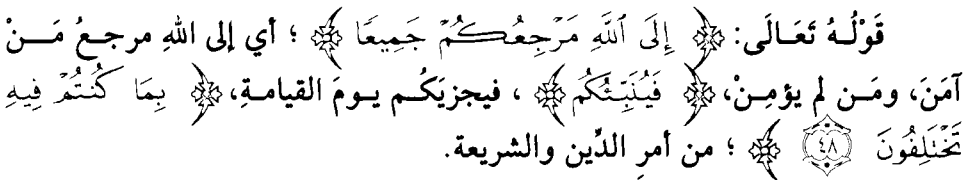 قَوْلُهُ تَعَالَى: ﴿ إِلَى ٱللَّهِ مَرْجِعُكُمْ جَمِيعًا ﴾ ؛ أي إلى اللهِ مرجعُ مَنْ
آمَنَ، ومَن لم يؤمِنْ، ﴿ فَيُنَبِّئُكُم ﴾ ، فيجزيَكُم يومَ القيامةِ، ﴿ بِمَا كُنتُمْ فِيهِ
تَخْتَلِفُونَ ٤٨ ﴾ ؛ من أمرِ الدِّين والشريعة.